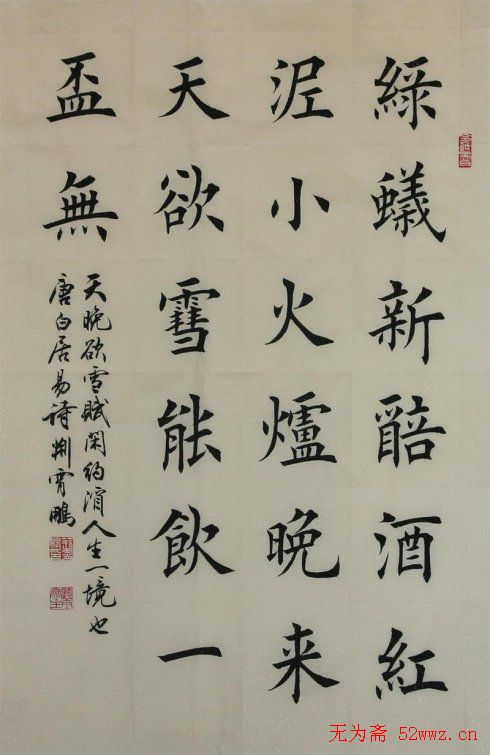 綠蟻新醅酒紅
泥小火爐晚来
天欲雪能飲一
盃無
天晚欲雪賦闲約人生一境也
唐白居易詩荆霄鵬
无为斋 52wwz.cn